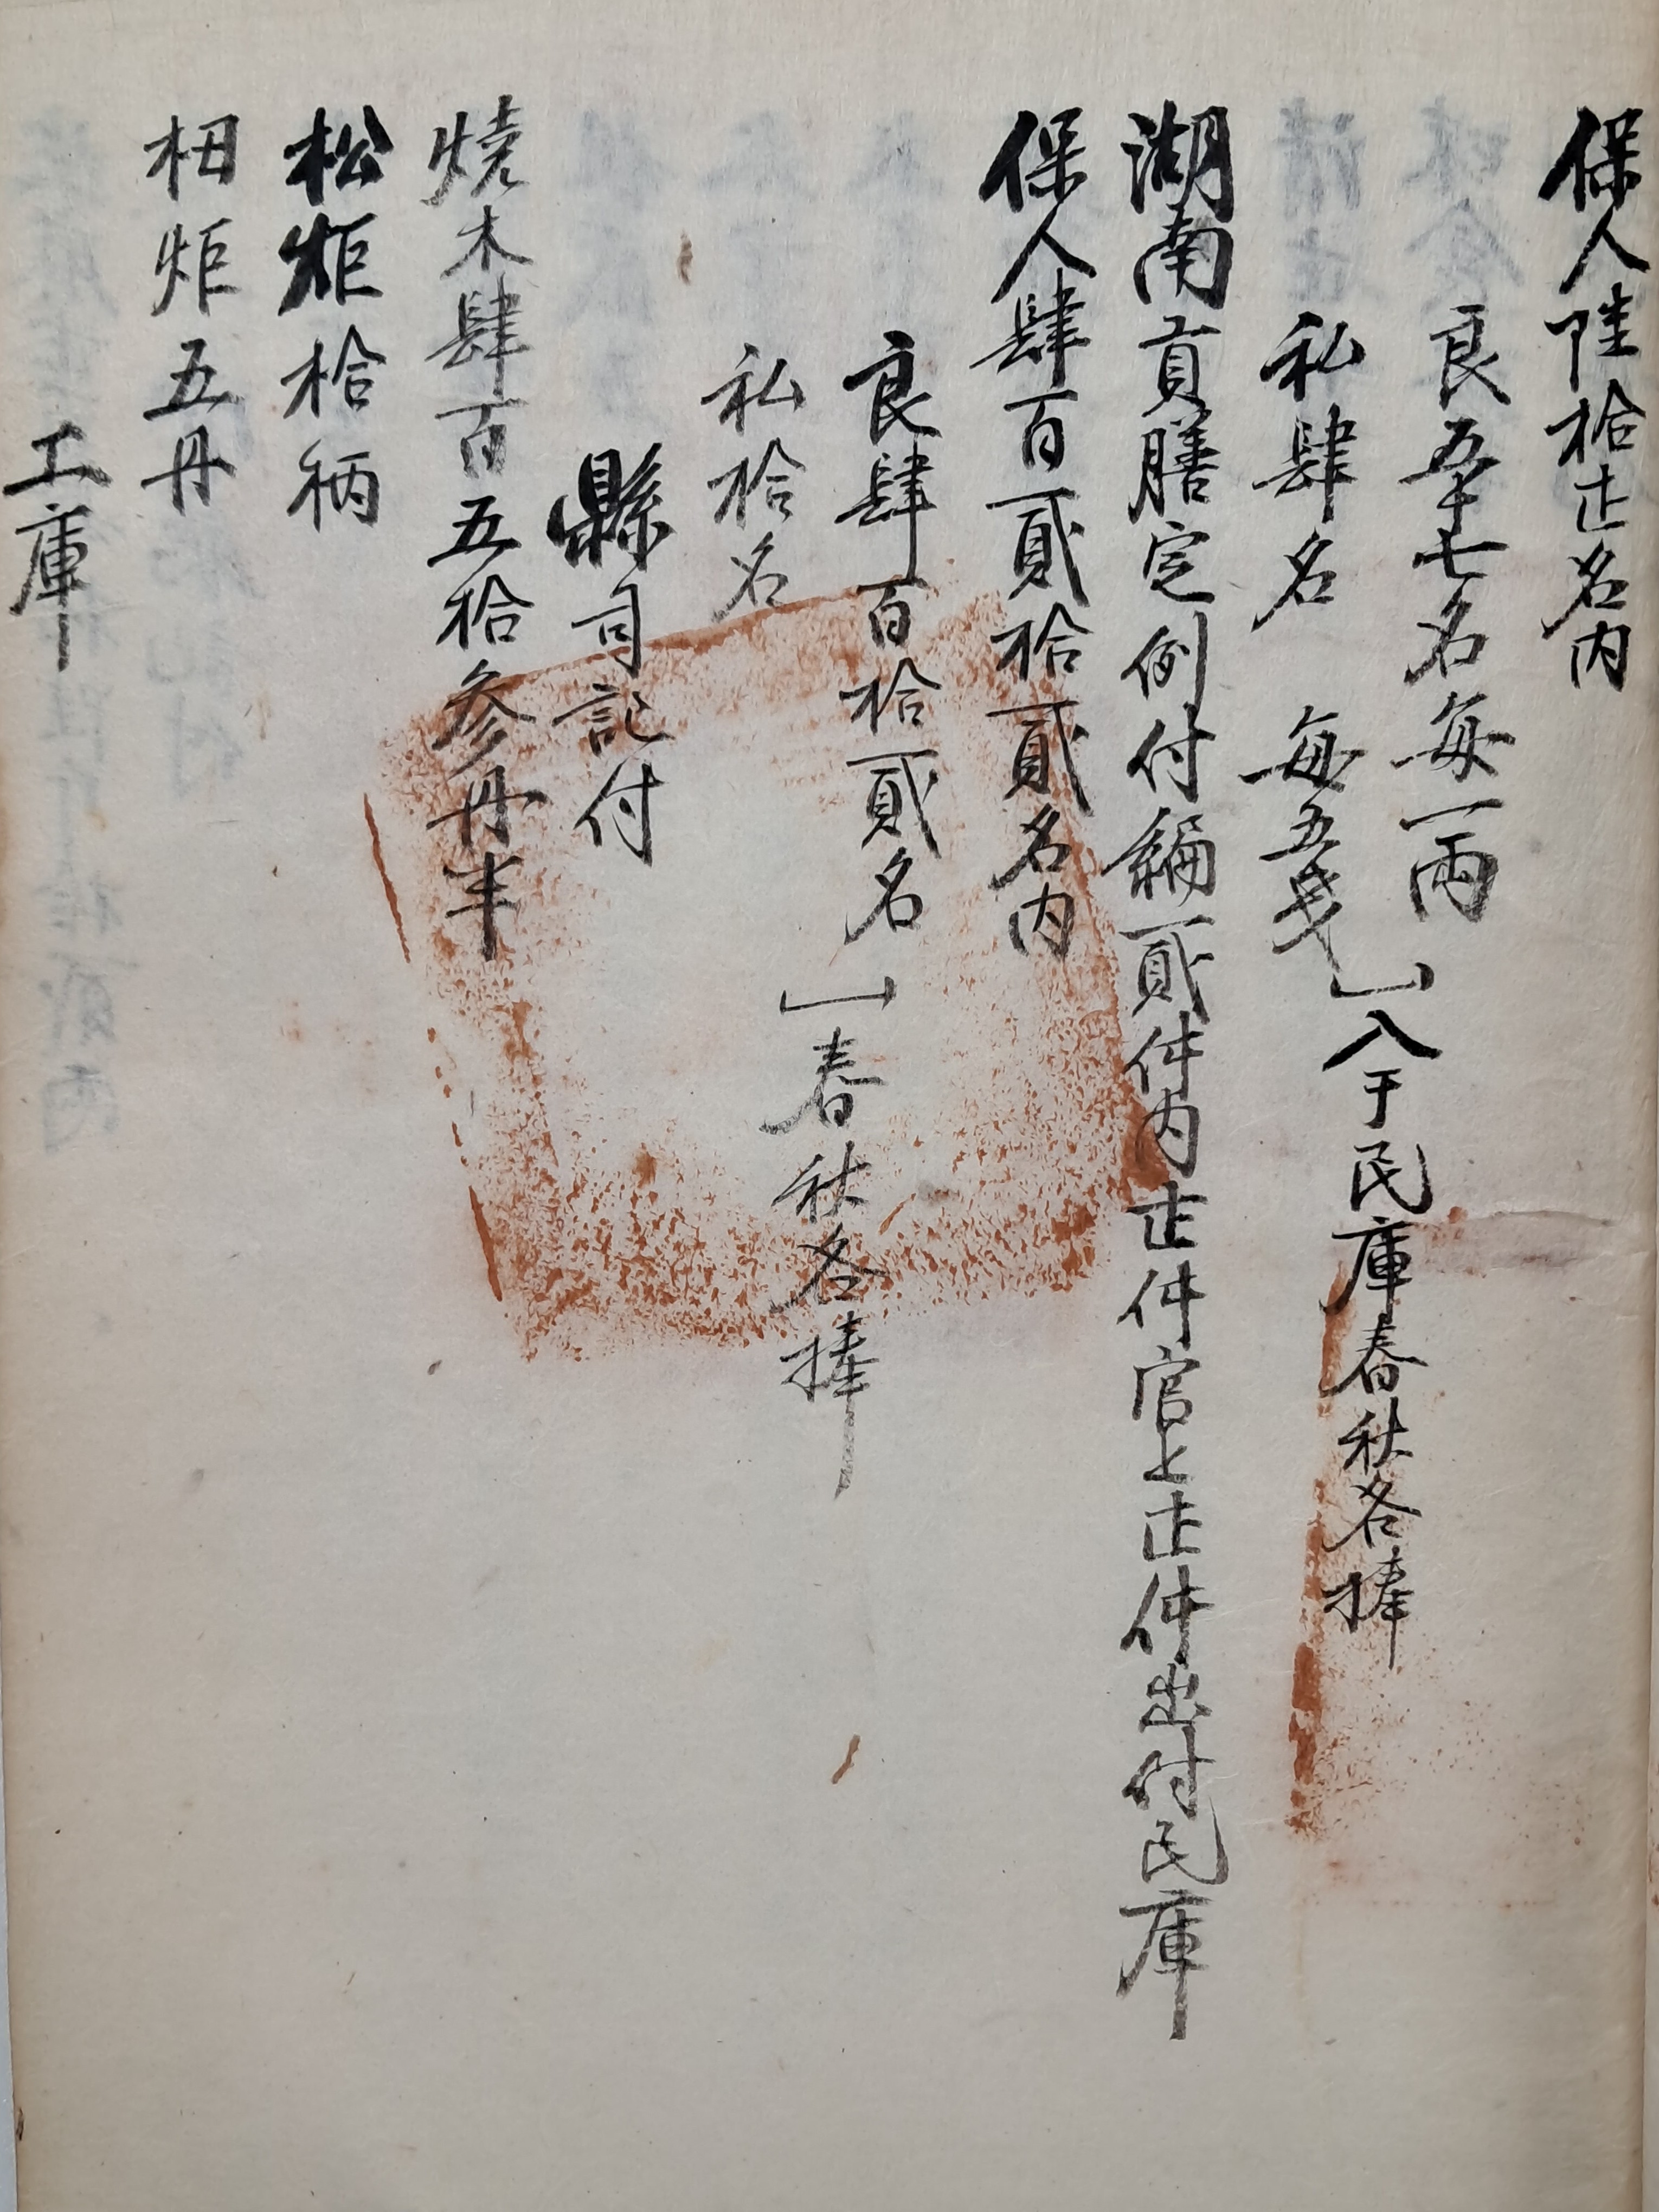 保人陸拾壱名内
良五十七名每一兩
私肆名 每五戔
入于民庫春秋各捧
湖南貢膳定例付編貳件内壱件官上壱件出付民庫
保人肆百貳拾貳名内
良肆百拾貳名
私拾名
春秋各捧
縣司記付
燒木肆百五拾參丹半
松炬拾柄
杻炬五丹
工庫